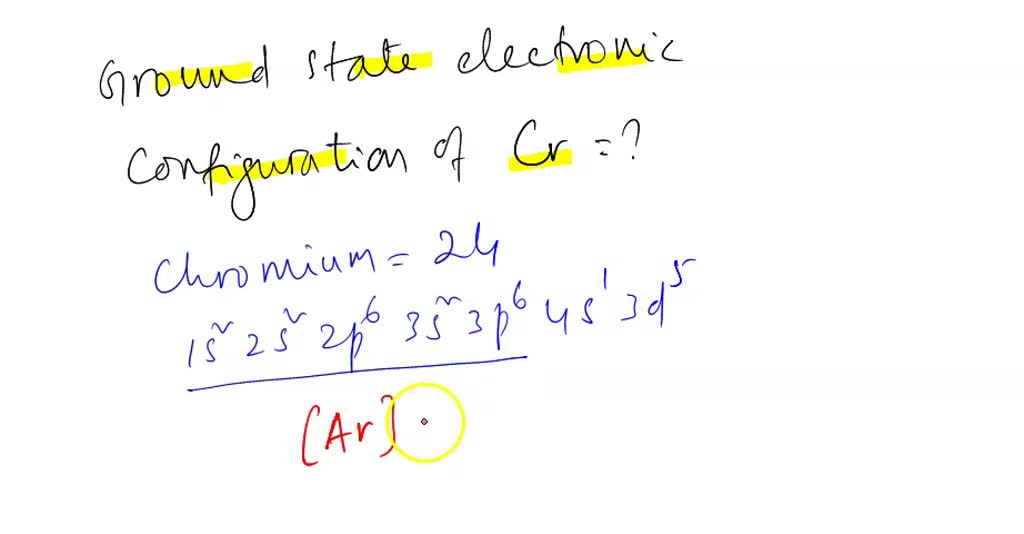 Ground state electronic
configuration of Cr = ?
Chromium = 24
1s² 2s² 2p⁶ 3s² 3p⁶ 4s¹ 3d⁵
[Ar]